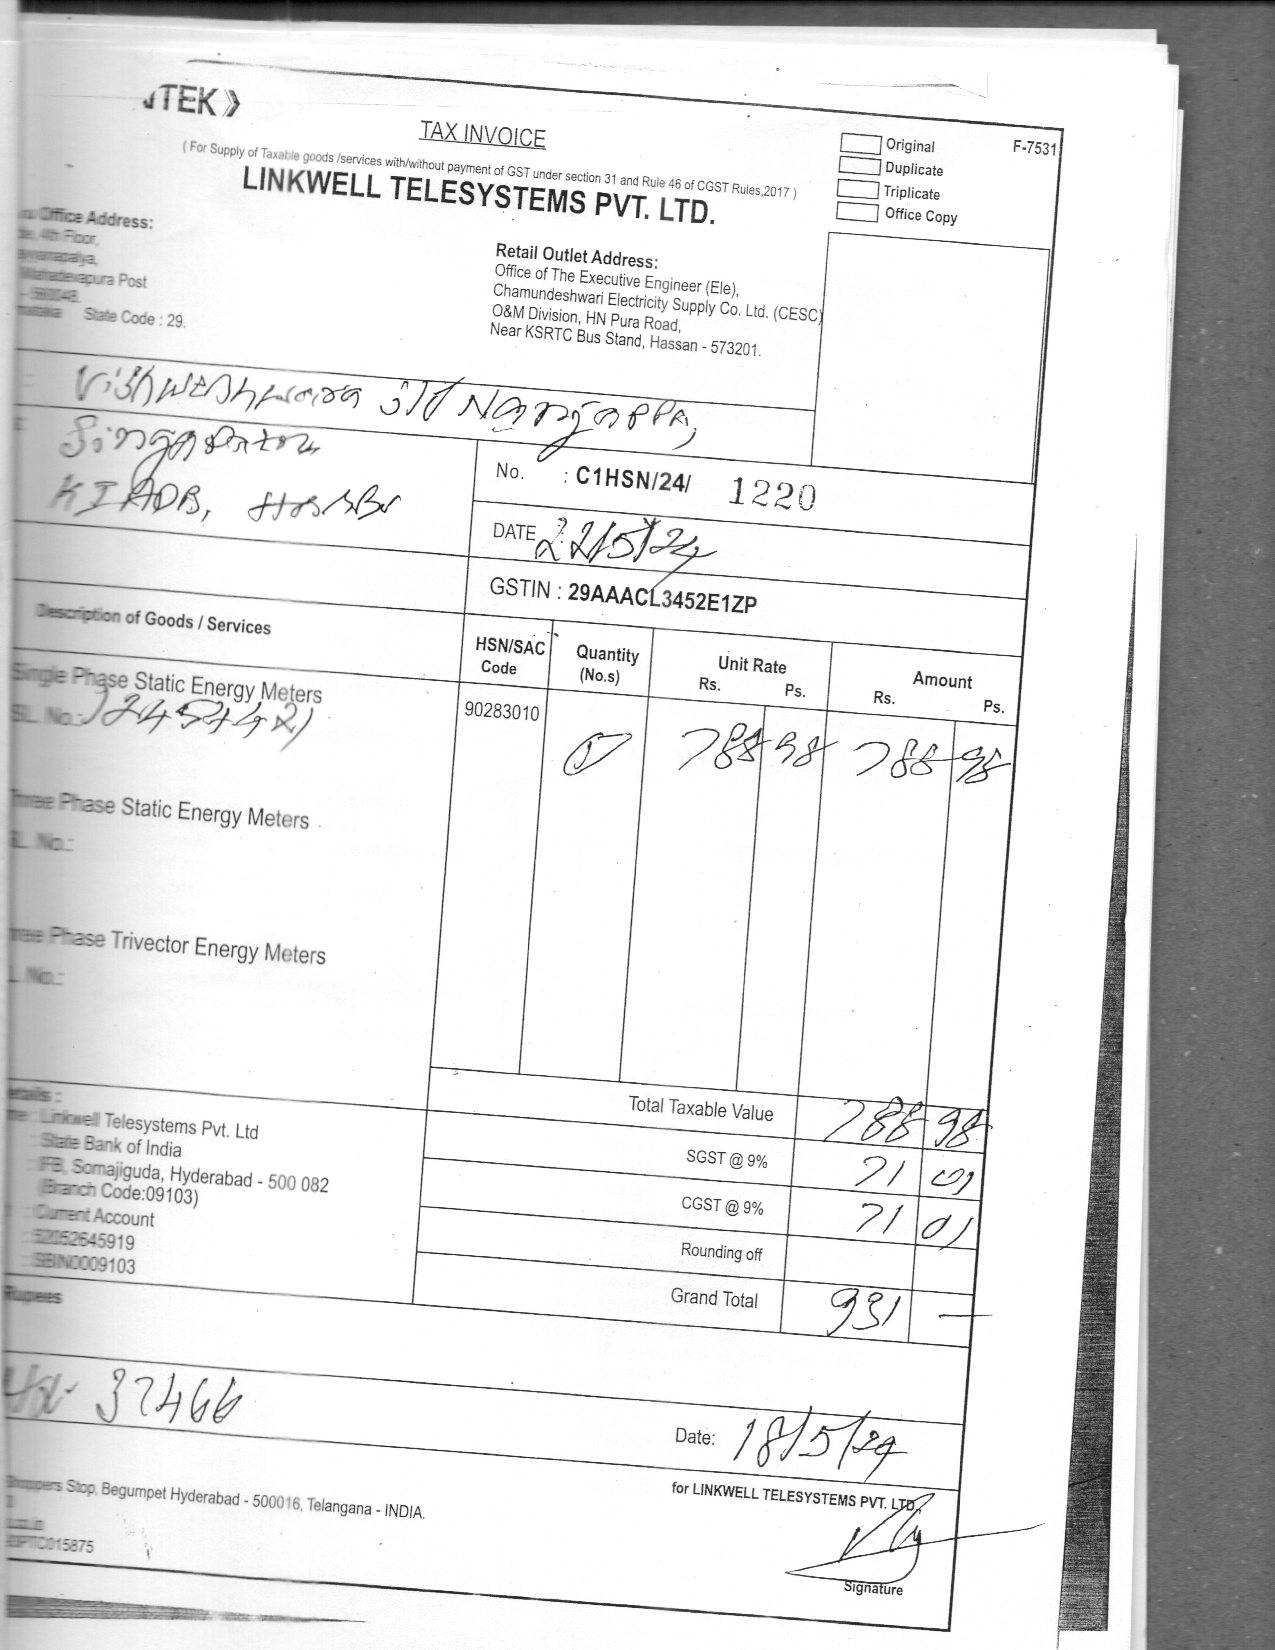 TEK
TAX INVOICE
( For Supply of Taxable goods /services with/without payment of GST under section 31 and Rule 46 of CGST Rules,2017 )
LINKWELL TELESYSTEMS PVT. LTD.
Original
Duplicate
Triplicate
Office Copy
F-7531
Office Address:
4th Floor,
Mahadevapura Post
- 560048.
State Code : 29.
Retail Outlet Address:
Office of The Executive Engineer (Ele),
Chamundeshwari Electricity Supply Co. Ltd. (CESC)
O&M Division, HN Pura Road,
Near KSRTC Bus Stand, Hassan - 573201.
KIADB,
No. : C1HSN/24/ 1220
DATE : 22/5/24
GSTIN : 29AAACL3452E1ZP
Description of Goods / Services
HSN/SAC Code
Quantity (No.s)
Unit Rate Rs. Ps.
Amount Rs. Ps.
Single Phase Static Energy Meters
SL. No.:
90283010
788 98 788 98
Three Phase Static Energy Meters
SL. No.:
Three Phase Trivector Energy Meters
SL. No.:
Total Taxable Value 788 98
SGST @ 9% 71 01
CGST @ 9% 71 01
Rounding off
Grand Total 931 —
Linkwell Telesystems Pvt. Ltd
State Bank of India
IFB, Somajiguda, Hyderabad - 500 082
(Branch Code:09103)
Current Account
52052645919
SBIN0009103
Rupees
37466
Date: 18/5/24
for LINKWELL TELESYSTEMS PVT. LTD.,
Shoppers Stop, Begumpet Hyderabad - 500016, Telangana - INDIA.
015875
Signature